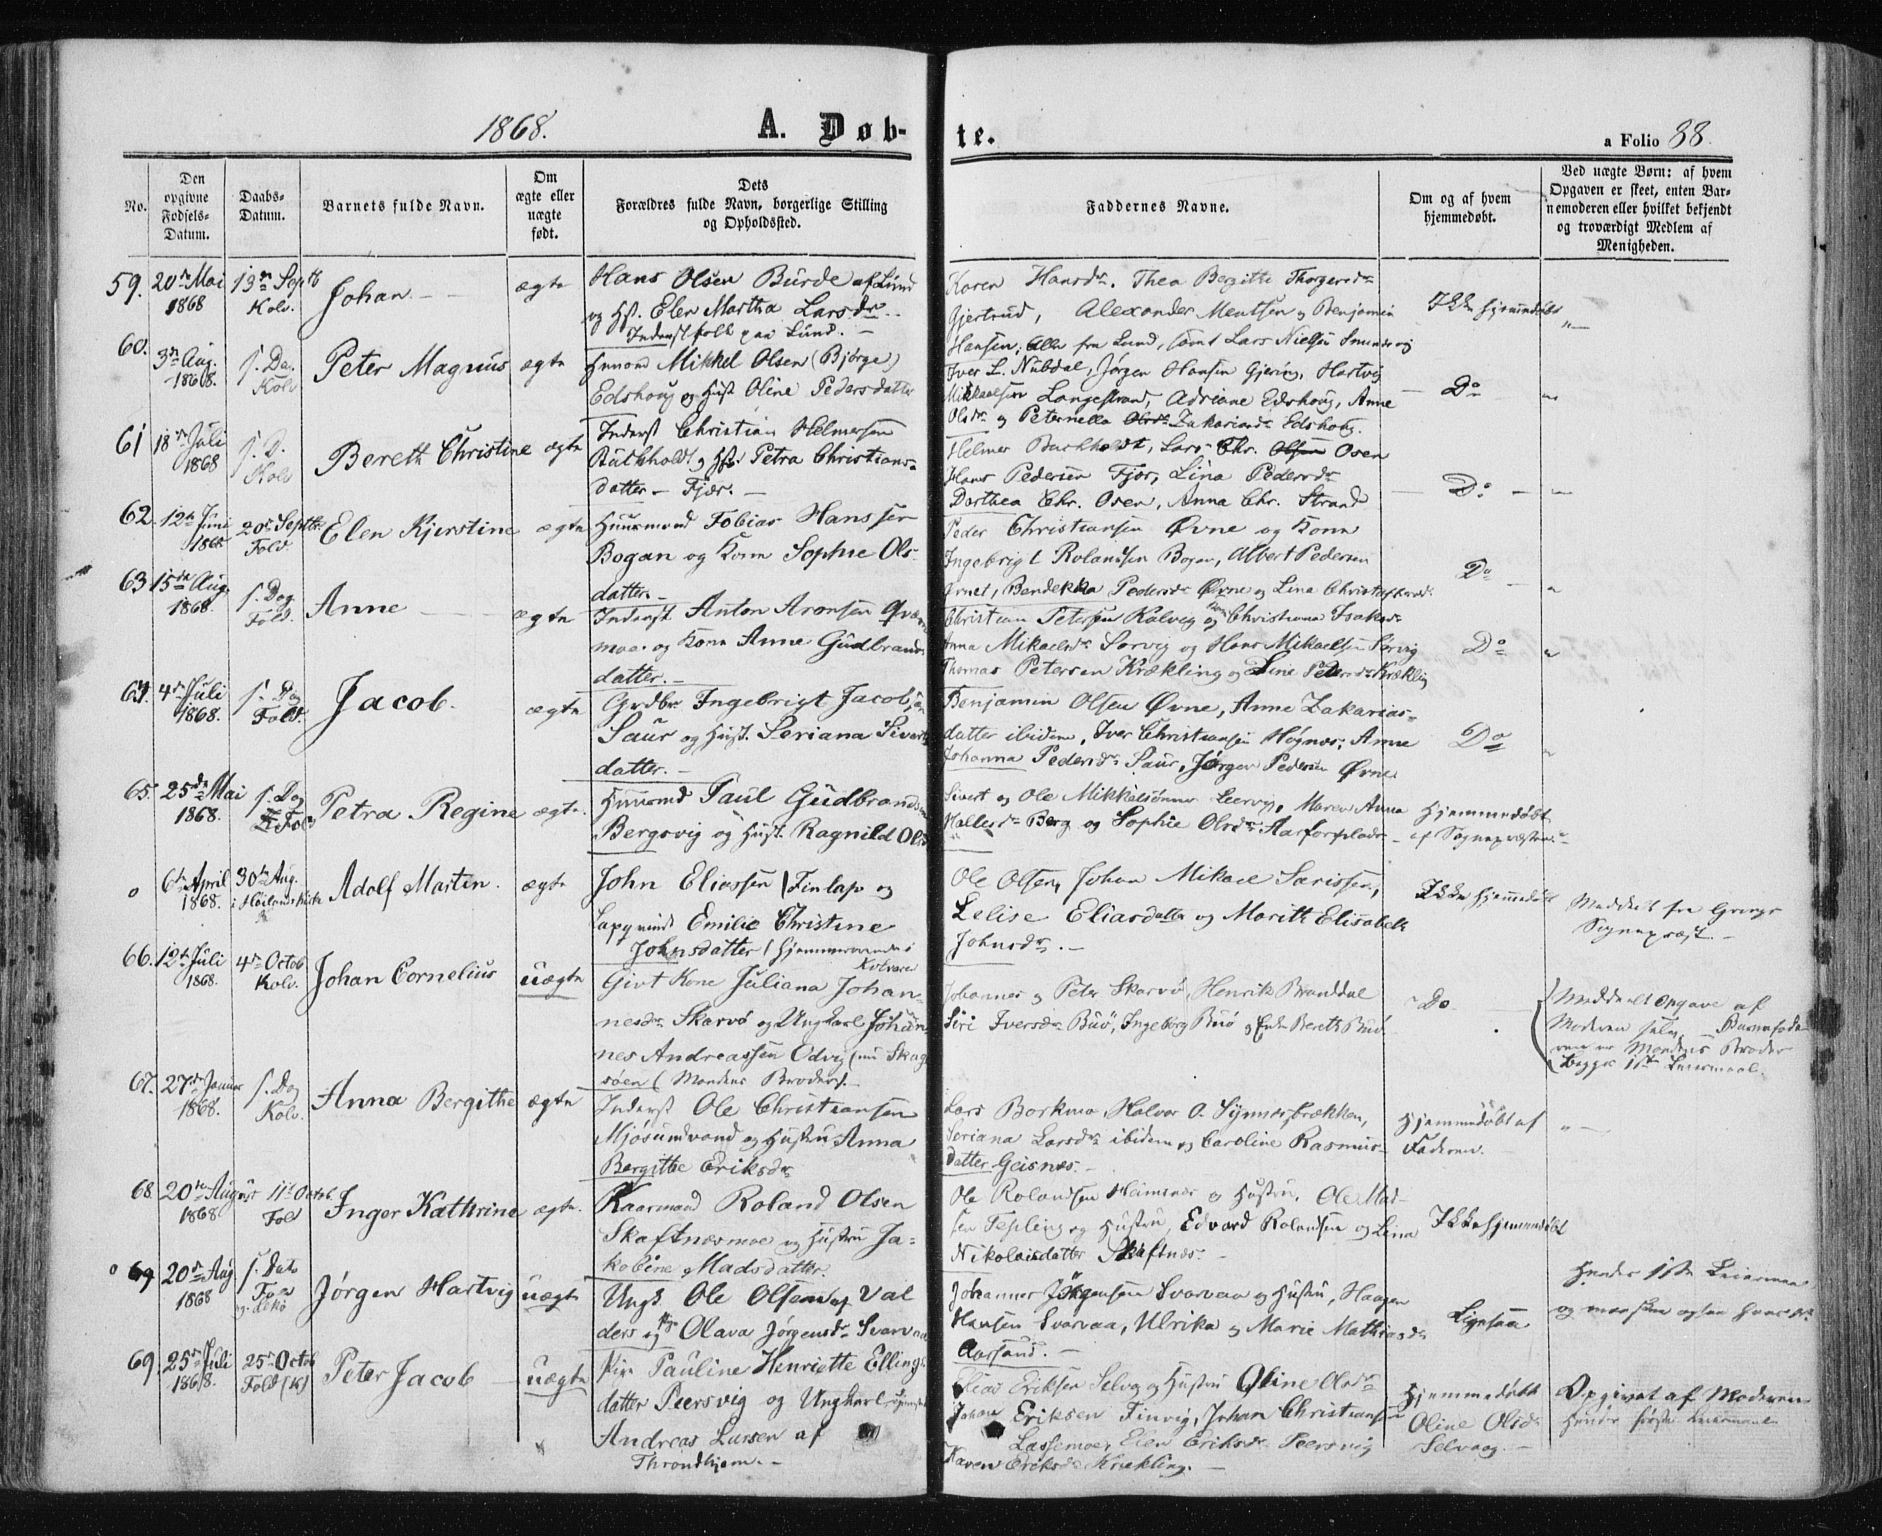 1868. A. Døb- te. a Folio 88.
No.
Den opgivne Fødsels-Datum.
Daabs-Datum.
Barnets fulde Navn.
Om ægte eller uægte født.
Dets Forældres fulde Navn, borgerlige Stilling og Opholdssted.
Faddernes Navne.
Om og af hvem hjemmedøbt.
Ved uægte Børn: af hvem Opgaven er skeet, enten Barnemoderen eller hvilket bekjendt og troværdigt Medlem af Menigheden.
59. 20de Mai 1868 13de Septb Kolv. Johan ægte
Hans Olsen Burde af Lund
og Hst. Elen Martha Larsdr.
Inderstfolk paa Lund.
Karen Hansdr. Thea Bergitte Thorgersdr
Gjertrud, Alexander Mentsen og Benjamin
Hansen, alle fra Lund, samt Lars Nielsen
Ikke hjemmedøbt
60. 3de Aug. 1868. s. Da. Kolv Peter Magnus ægte
Huusmd Mikkel Olsen (Bjørge)
Edshoug og Hust Oline Pedersdatter
Iver L. Nubdal, Jørgen Hansen Gjering, Hartvig
Mikkaelsen Langestrand, Adriane Edshoug, Anne
Olsdr og Peternella Zakariasdr Edshoug.
Do
61 18de Juli 1868 s. D. Kolv Bereth Christine ægte
Inderst Christian Helmersen
Buthholdt og Hst. Petra Christians-
datter - Fjær. -
Helmer Buckholdt, Lars Chr. Osen
Hans Pedersen Fjær, Lina Pedersdr
Dorthea Chr. Osen, Anna Chr. Strand
Do
62 12te Juni 1868 20de Septbr Fold Elen Kjerstine ægte
Huusmand Tobias Hanssen
Bogan og Kone Sophie Ols-
datter. -
Peder Christiansen Øvne og Kone
Ingebrigt Rolandsen Bogan, Albert Pedersen
Arnet, Bendekka Pedersdr Øvne og Lina Christoffersdr.
Do
63 15de Aug. 1868. s. Dag Fold. Anne ægte
Inderst Anton Aronsen
moe. og Kone Anne Gudbrands
datter. -
Christian Petersen Kalvig og Christiana Isaksdr
Anna Mikaelsdr Sørvig og Hans Mikaelsen Sørvig
Thomas Petersen Krækling og Line Pedersdr Krækling
Do
64. 4de Juli 1868. s. Dag Fold. Jacob. ægte
Grdbr. Ingebrigt Jacobsen
Saur og Hust. Seriana Siverts
datter. -
Benjamin Olsen Øvne, Anne Zakarias-
datter ibidem, Iver Christiansen Høgnæs, Anne
Johanna Pedersdr Saur, Jørgen Pedersen Øvne
Do
65. 25de Mai 1868. s. Dag Fold Petra Regine ægte.
Huusmd Paul Gudbrandsen
Bergsvig og Hust. Ragnild Olsd
Sivert og Ole Mikkelsønner Leervg, Maren Anna
Hallesdr Berg og Sophie Olsdr Aarforplads
Hjemmedøbt
af Sognepræsten
6te April 1868. 30te Aug. i Høilands Kirke Adolf Martin. ægte
John Eliassen (Finlap og
Lapqvind Emilie Christine
Johnsdatter (hjemmeværende i
Kolvere
Ole Olsen, Johan Mikael Sarissen,
Lelise Eliasdatter og Marith Elisabeth
Johnsdr. -
Ikke hjemmedøbt
Meddelt fra Grongs
Sognepræst. -
66. 12te Juli 1868. 4de Octob Kolv. Johan Cornelius uægte
Givt Kone Juliana Johan-
nesdr Skarvø og Ungkarl Johan-
nes Andreassen Odvig (nu Skag
søen (Mandens Broder).
Johannes og Peter Skarvø, Henrik Branddal
Siri Iversdr Buø, Ingeborg Buø og Enke Bereth Buø
Do
Meddeelt Opgave af
Moderen selv - Barnefade-
ren er Mandens Broder
Begges 1ste Leiermaal.
67. 27de Januar 1868. s. Dag Kolv. Anna Bergithe ægte
Inderst Ole Christiansen
Mjøsundvand og Hustru Anna
Bergitte Eriksdr
Lars Borkmo, Halvor O. Synnesbrækken,
Seriana Larsdr ibidem og Caroline Rasmus-
datter Geisnæs. -
Hjemmedøbt af
Faderen.
68. 20de August 1868. 11te Octob. Fold Inger Kathrine ægte.
Kaarmand Roland Olsen
Skaftnæsmoe og Hustru Ja-
kobine Madsdatter.
Ole Rolandsen Heimsnæs og Hustru, Ole Mad-
sen Tepling og Hustru, Edvard Rolandsen og Lina
Nikolaisdatter Skaftnæs. -
Ikke hjemmedøbt
69 20de Aug 1868 s. Dato Fold Jørgen Hartvig uægte
Ungk. Ole Olsen af Val
ders og Pg Olava Jørgensdr Svarvaa
Johannes Jørgensen Svarvaa og Hustru, Haagen
Hansen Svarvaa, Ulrika og Marie Mathiasdr
Aarsand. -
Ligesaa
Hendes 1ste Leiermaal
69. 25de Juli 1868. 25de Octob Fold (K) Peter Jacob uægte
Pige Pauline Henriette Ellings
datter Peersvig og Ungkarl
Andreas Larsen af
Throndhjem. -
Elias Eriksen Selvg og Hustru Oline Olsdr
Johan Eriksen Finvig, Johan Christiansen
Lassemoe, Elen Eriksdr Peersvig
Karen Eriksdr Krækling. -
Hjemmedøbt
Oline Olsdr
Selvaag. -
Opgivet af Moderen
Hendes første Leiermaal